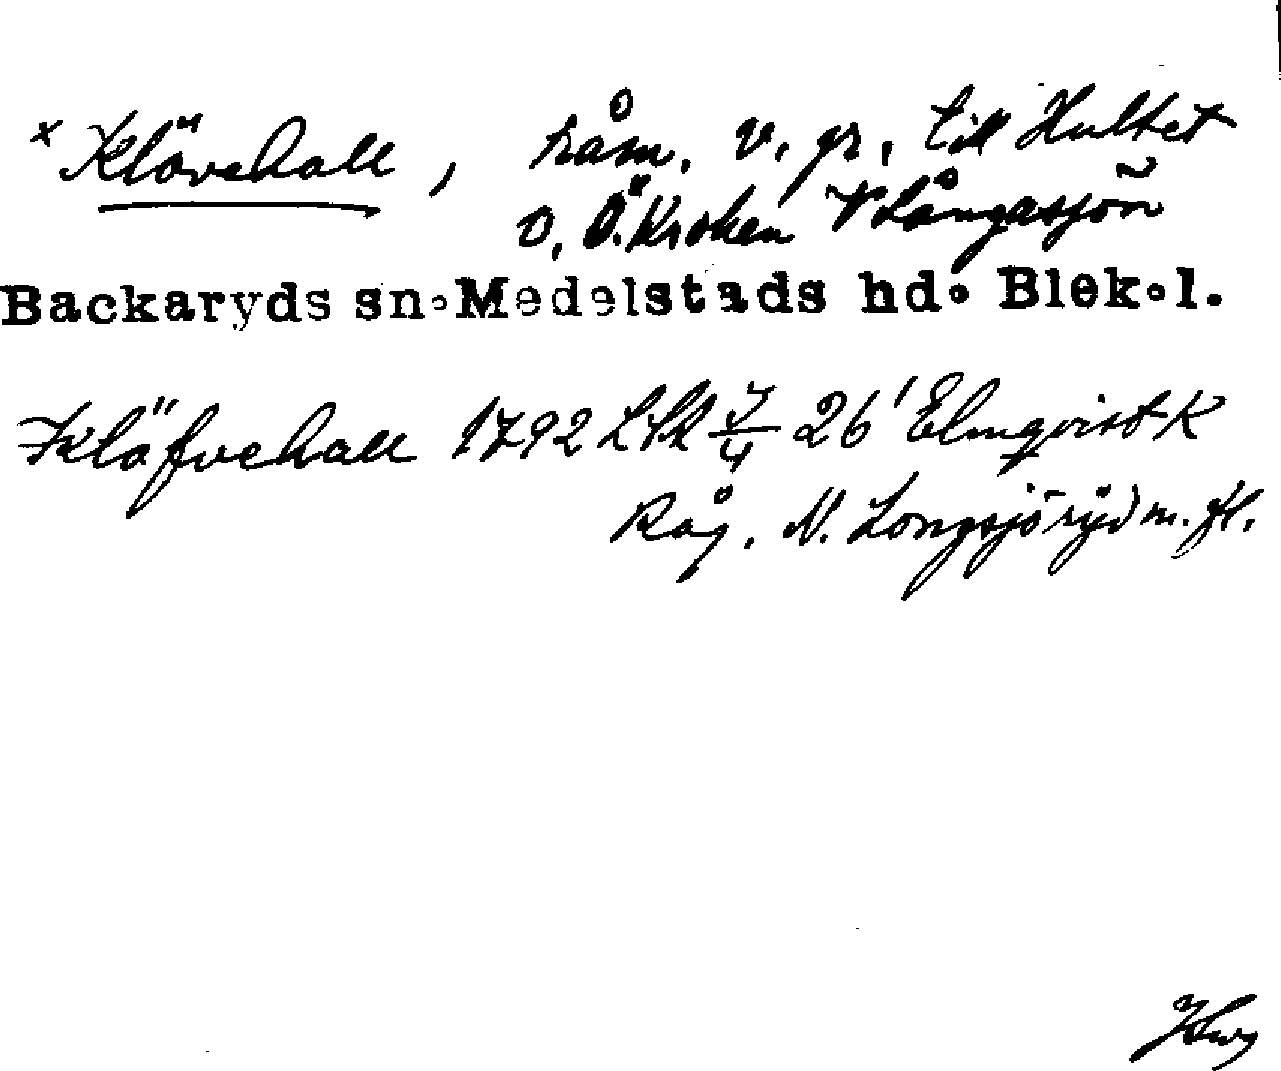 x Klövehall, råm. v. gr. till Hultet
o. Ö. Kroken V Långasjön
Backaryds sn. Medelstads hd. Blek. l.
Klöfvehall 1792 LSk 7/4 26' Elmqvist K
Råg. N. Longsjöryd m. fl.